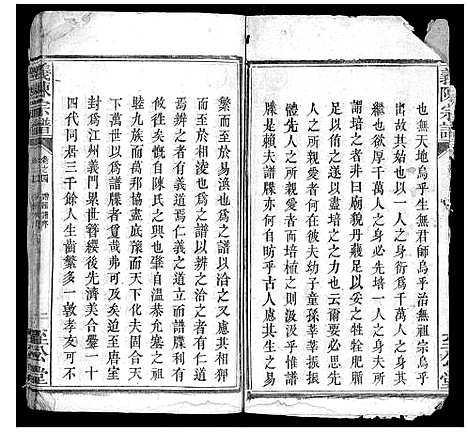 義陳宗譜
無天地烏乎生無君師烏乎治無祖宗烏乎
出故其始也以一人之身衍爲千萬人之身其
繼也欲厚千萬人之身必先培一人之身然所
謂培之者非曰廟貌丹艧足以妥之牲牷肥腯
足以侑之遂以盡培之之力也云爾要必思先
人之所親愛者何在彼夫幼子童孫莘莘振振
何一非先人所親愛者而培植之則
牒是賴夫譜牒亦何自昉乎古人處其生之易
至公堂
繁而至於易渙也爲之譜以洽之又慮其相狎
而至於無辨也爲之譜以辨之洽之者有仁道
焉辨之者有義道焉仁義之道立而譜牒利有
攸往矣自來陳氏之興也肇自溫恭允塞之祖
睦九族而萬邦協盡底豫而天下化夫固合天
下萬世以爲譜牒者貴哉弗可及矣迨至唐室
封爲江州義門累世簪纓後先濟美合爨一十
四代同居三千餘人生齒繁多一敦孝友可不
義陳宗譜
卷之四
二
至公堂